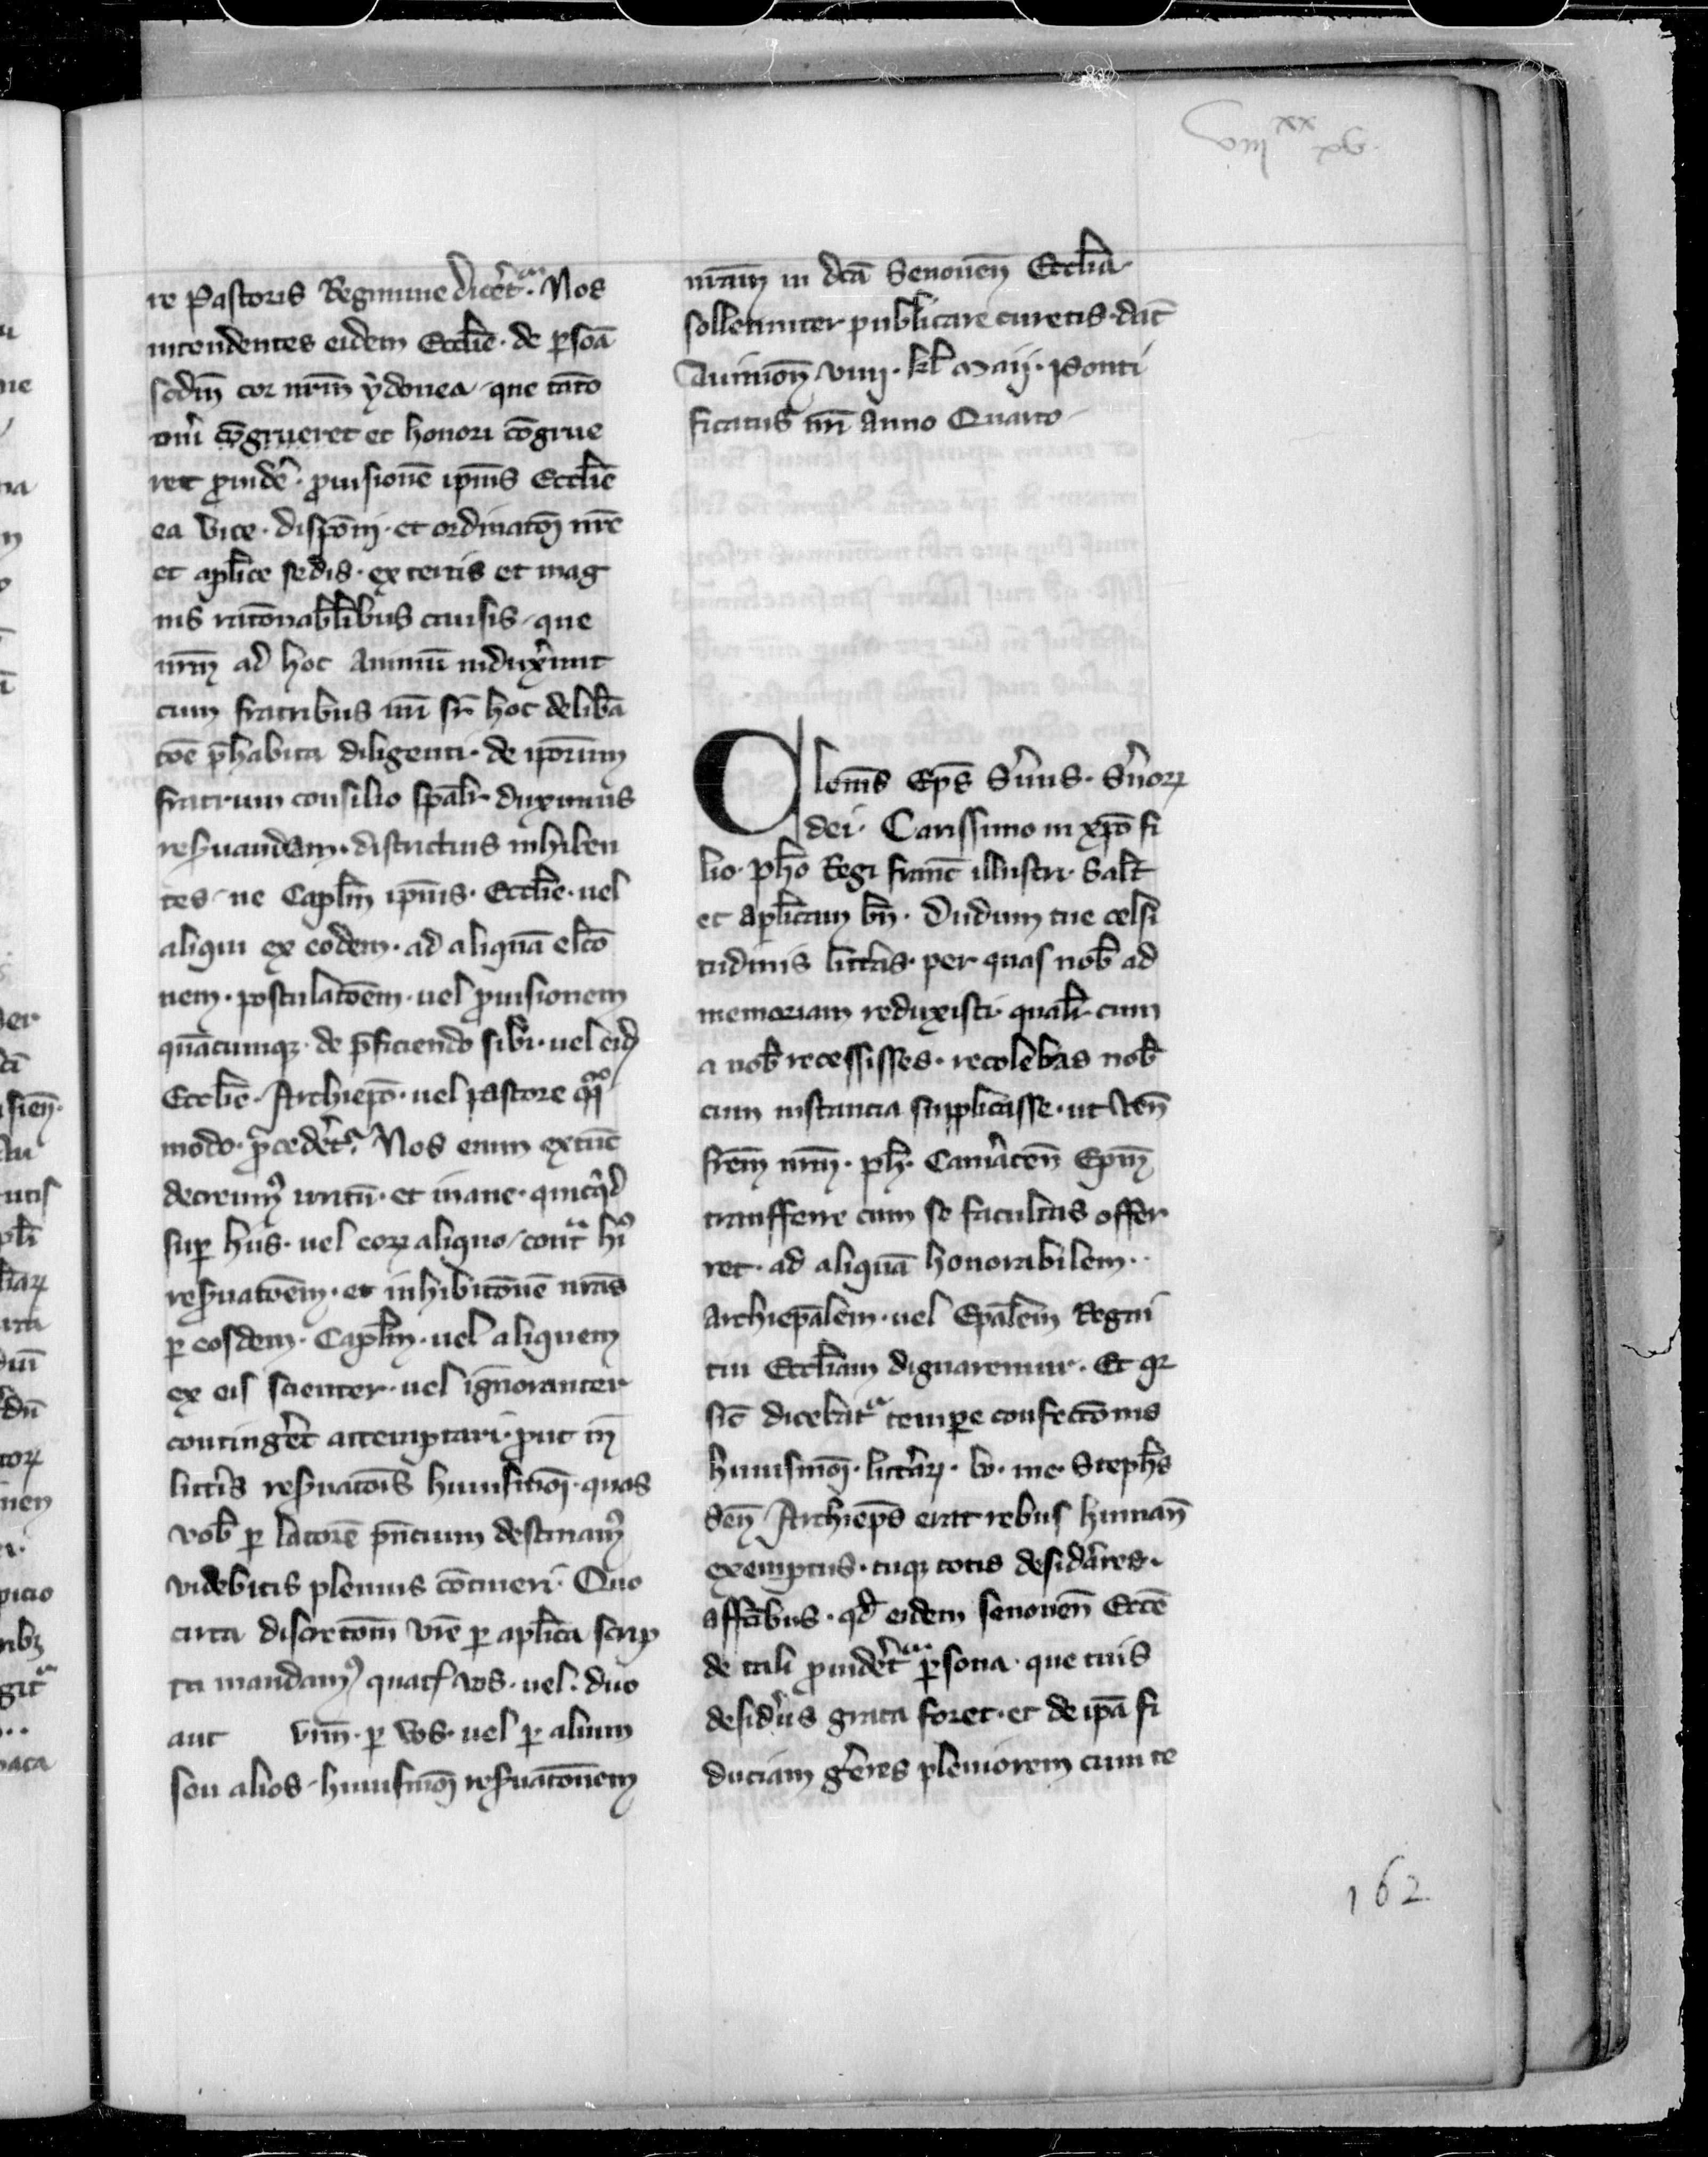 re Pastoris Regimine dicert̃ᵃ. Nos
intendentes eidem Eccl̃ie · de ꝑsoã
scdm̃ cor nr̃m ẏdonea / que tãto
oñi cõgrueret et honori cõgrue
ret ꝓuidẽ · ꝓuisionẽ ip̃ius Eccl̃ie
ea vice · dispõni · et ordinatõi nr̃e
et apl̃ice sedis · ex certis et mag
nis ratõnabl̃ibus causis / que
nr̃m ad hoc animũ induxer̃unt
cum fratribus nr̃i sr̃ hoc delibr̃a
tõe p̃habita diligenti · de ip̃orum
fratrum consilio sp̃alr̃ duximus
reseruandam · districtius inhiben
tes / ne Capl̃m ip̃ius · Eccl̃ie · uel
aliqui ex eodem · ad aliquã elc̃o
nem · postulatõem · uel ꝓuisionem
quãcumqꝫ · de p̃ficiendo sibi · uel eid̃
Eccl̃ie · Archiep̃o · uel pastore qͦqͦ
modo · ꝓcedert̃ᵃ. Nos enim extũc
decreuimꝰ irritũ · et inane · quicq̃d
suꝑ hiis · uel eoꝝ aliquo / contᵃ hĩꝰ
reseruatõem · et inhibitõnẽ nr̃as
ꝑ eosdem · Capl̃m · uel aliquem
ex eis scienter · uel ignoranter
continger̃et attemptari · ꝓut in
litter̃is reseruatõis huiusmõi · quas
vob̃ ꝑ latorẽ p̃ncium destinamꝰ
videbitis plenius cõtineri · Quo
circa discretõni vr̃e ꝑ apl̃ica scrip
ta mandamꝰ quatꝰ vos · uel · duo
aut vnũ · ꝑ vos · uel ꝑ alium
seu alios · huiusmõi reseruatõnem
nr̃am in dc̃a Senonen̄ Eccl̃ia
sollenniter publicare curetis · dat̃
Auinion̄ viiij · kl̃ Maij · Ponti
ficatus nr̃i Anno Quarto
Clemẽs Ep̃s Ser̃uus · Ser̃uoꝝ
dei · Carissimo in xp̃o fi
lio · ph̃o Regi franc̃ illustri · Salt̃
et apl̃icam bñ · Dudum tue celsi
tudinis litter̃as · per quas nob̃ ad
memoriam reduxisti · qualr̃ cum
a nob̃ recessisses · recolebas nob̃
cum instancia supplicasse · ut Ven̄
fr̃em nr̃m · ph̃ · Camer̃acen̄ Ep̃m
transfferre cum se facultas offer
ret · ad aliquã honorabilem ··
Archiep̃alem · uel Ep̃alem Regni
tui Eccl̃iam dignaremur · Et qꝛ
sic̃ dicebatᵃ tempe confectõnis
huiusmõi · litter̃aꝝ · bo · me · Steph̃s
Sen̄ Archiep̃s erat rebus human̄
exemptus · tuqꝫ totis desider̃ares ·
affc̃ibus · qd̃ eidem senonen̄ Eccl̃ie
de tali ꝓuidert̃ᵃ ꝑsona · que tuis
desider̃iis grata foret · et de ip̃a fi
duciam ger̃eres pleniorem cum te
162